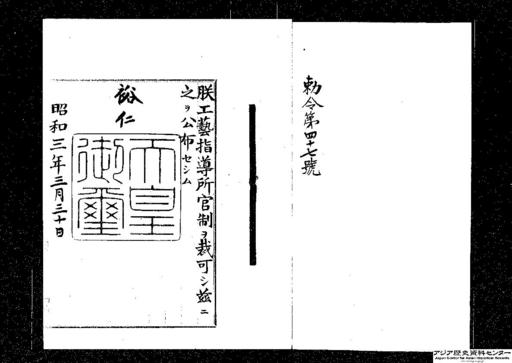 勅令第四十七號
朕工藝指導所官制ヲ裁可シ茲ニ
之ヲ公布セシム
裕仁
天皇
御璽
昭和三年三月三十日
アジア歴史資料センター
Japan Center for Asian Historical Records